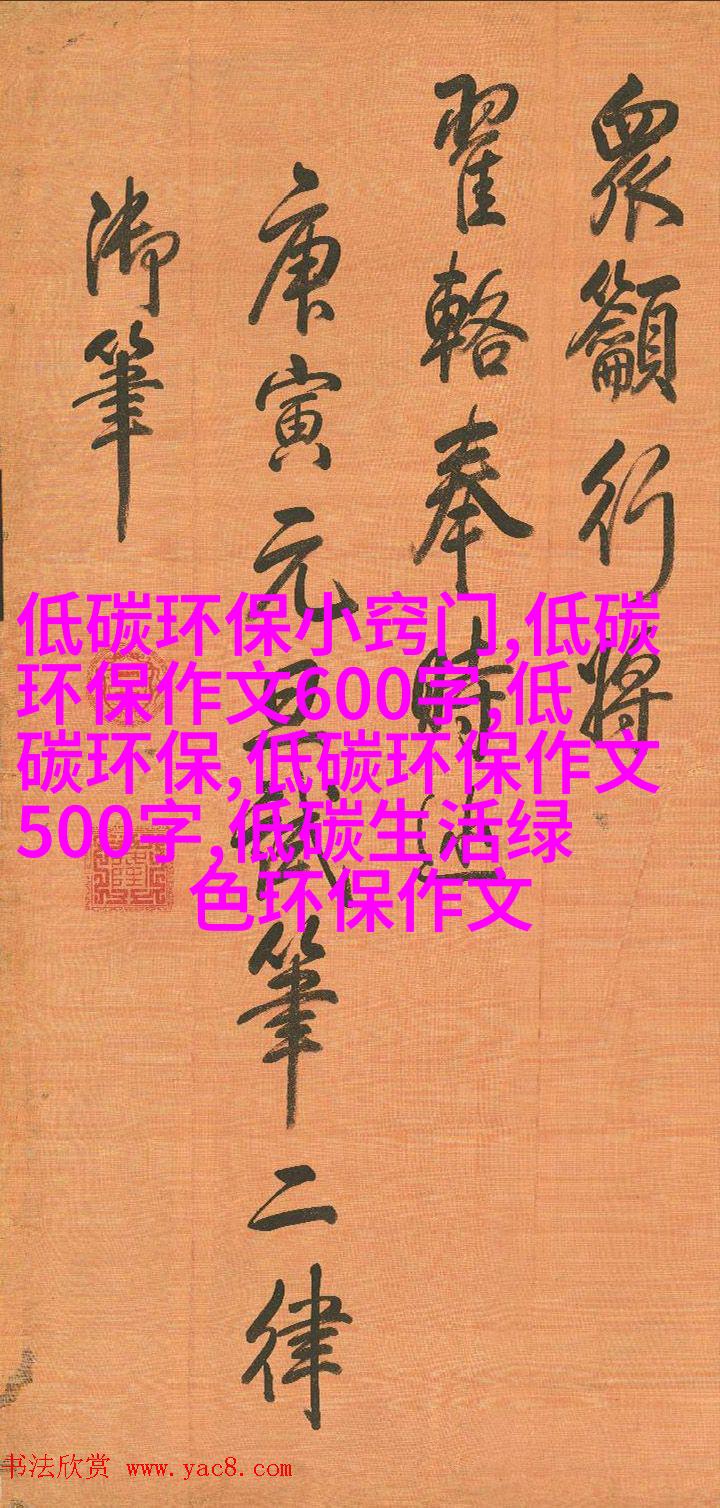 眾籲行將
翟輅奉時巡
庚寅元旦試筆二律
御筆
低碳环保小窍门,低碳
环保作文600字,低
碳环保,低碳环保作文
500字,低碳生活绿
色环保作文
书法欣赏 www.yac8.com